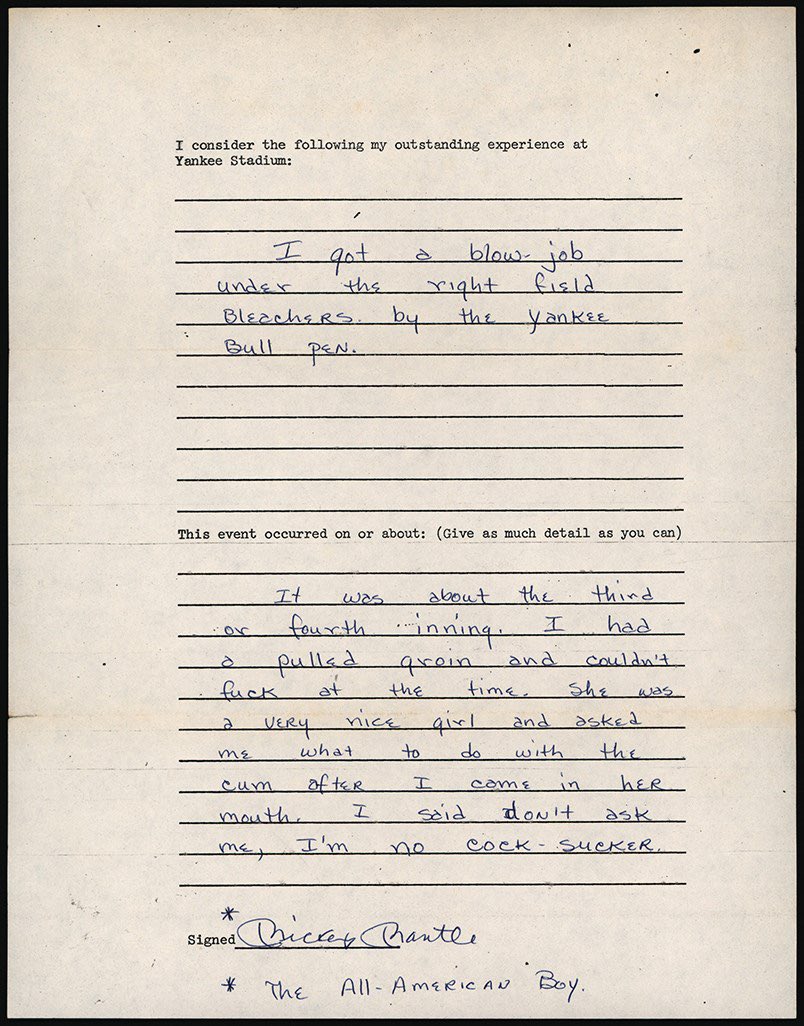 I consider the following my outstanding experience at
Yankee Stadium:
I got a blow-job
under the right field
Bleachers by the Yankee
Bull pen.
This event occurred on or about: (Give as much detail as you can)
It was about the third
or fourth inning. I had
a pulled groin and couldn't
fuck at the time. She was
a very nice girl and asked
me what to do with the
cum after I came in her
mouth. I said don't ask
me, I'm no cock-sucker.
*
Signed Mickey Mantle
* The All-American Boy.